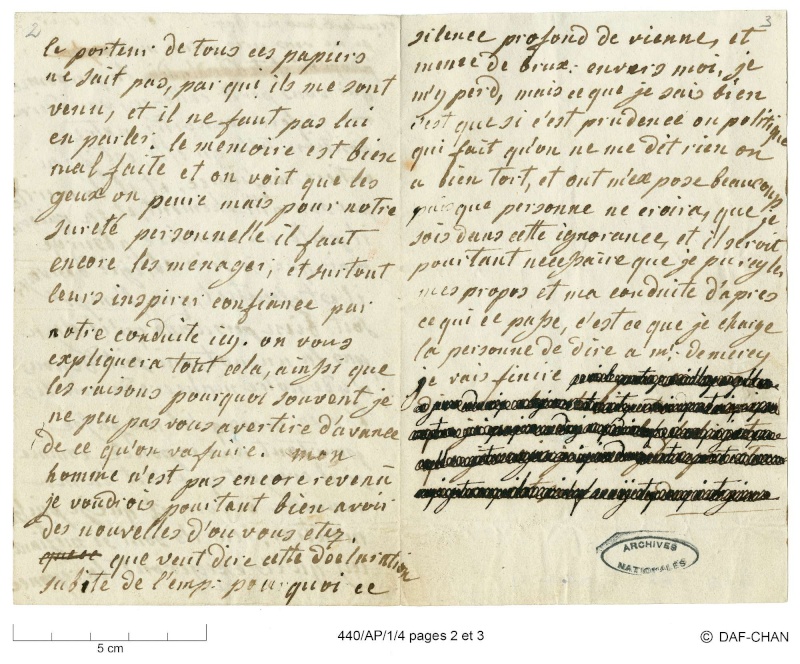 2
le porteur de tous ces papiers
ne sait pas, par qui ils me sont
venu, et il ne faut pas lui
en parler. le mémoire est bien
mal faite et on voit que les
geux on peure mais pour notre
sureté personnelle il faut
encore les menager, et surtout
leurs inspirer confiance par
notre conduite icy. on vous
expliquera tout cela, ainsi que
les raisons pourquoi souvent je
ne peu pas vous avertire d'avance
de ce qu'on va faire. mon
homme n'est pas encore revenû
je voudrois pourtant bien avoir
des nouvelles d'ou vous etez.
que veut dire cette déclaration
subite de l'emp: pourquoi ce
3
silence profond de vienne, et
meme de brux: envers moi, je
m'y perd, mais ce que je sais bien
c'est que si c'est prudence ou politique
qui fait qu'on ne me dit rien on
a bien tort, et ont m'expose beaucoup
puisque personne ne croira, que je
sois dans cette ignorance, et il seroit
pourtant necessaire que je pu regler
mes propos et ma conduite d'apres
ce qui ce passe, c'est ce que je charge
la personne de dire a mr. de mercy
je vais finire
ARCHIVES
NATIONALES
5 cm
440/AP/1/4 pages 2 et 3
© DAF-CHAN